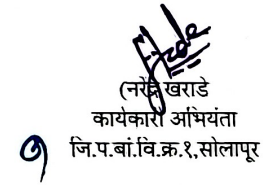 (नरेंद्र खराडे
कार्यकारी अभियंता
जि.प.बां.वि.क्र.१,सोलापूर